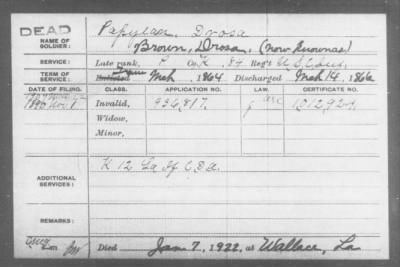 DEAD
NAME OF SOLDIER:
Papylar, Drosa
Brown, Drosa, (now known as)
SERVICE:
Late rank, P Co. K, 84 Reg't U.S.C. Inf.
TERM OF SERVICE:
Mch, 1864 Discharged Mch 14, 1866
DATE OF FILING. CLASS. APPLICATION NO. LAW. CERTIFICATE NO.
1890 Nov. 8 Invalid, 936,817
Widow,
Minor,
ADDITIONAL SERVICES:
K 12 La If C.D.A.
REMARKS:
Died Jan 7, 1922, at Wallace, La